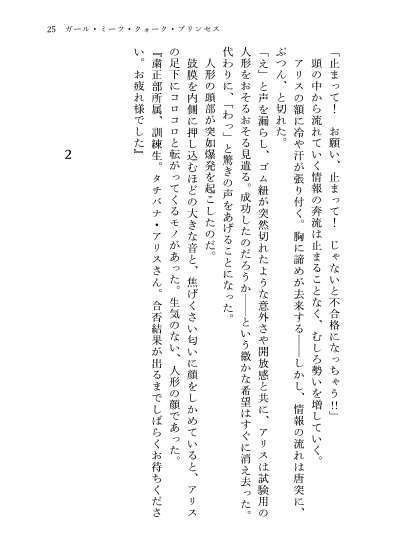 25　ガール・ミーツ・クォーク・プリンセス
「止まって！　お願い、止まって！　じゃないと不合格になっちゃう!!」
　頭の中から流れていく情報の奔流は止まることなく、むしろ勢いを増していく。
　アリスの額に冷や汗が張り付く。胸に諦めが去来する――しかし、情報の流れは唐突に、
ぷつん、と切れた。
「え」と声を漏らし、ゴム紐が突然切れたような意外さや開放感と共に、アリスは試験用の
人形をおそるおそる見遣る。成功したのだろうか――という微かな希望はすぐに消え去った。
代わりに、「わっ」と驚きの声をあげることになった。
　人形の頭部が突如爆発を起こしたのだ。
　鼓膜を内側に押し込むほどの大きな音と、焦げくさい匂いに顔をしかめていると、アリス
の足下にコロコロと転がってくるモノがあった。生気のない、人形の顔であった。
『粛正部所属、訓練生。タチバナ・アリスさん。合否結果が出るまでしばらくお待ちくださ
い。お疲れ様でした』
2